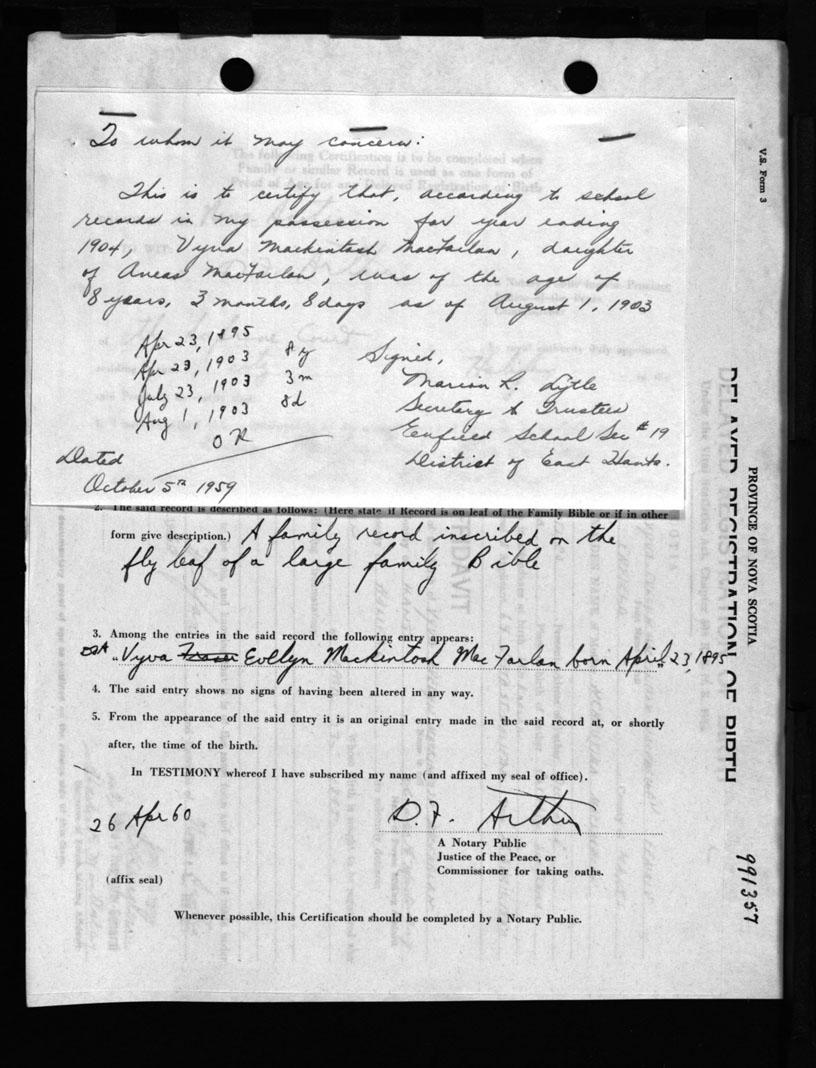 To whom it may concern:
This is to certify that, according to school
records in my possession for year ending
1904, Vyva Mackintosh MacFarlan, daughter
of Aneas MacFarlan, was of the age of
8 years, 3 months, 8 days as of August 1, 1903
Apr 23, 1895
Apr 23, 1903 8 y
July 23, 1903 3 m
Aug 1, 1903 8 d
OK
Signed,
Marion L. Lytle
Secretary to Trustees
Enfield School Sec #19
District of East Hants.
Dated
October 5th 1959
2. The said record is described as follows: (Here state if Record is on leaf of the Family Bible or if in other
form give description.) A family record inscribed on the
fly leaf of a large family Bible
3. Among the entries in the said record the following entry appears:
"Vyva Evelyn Mackintosh MacFarlan born April 23, 1895"
4. The said entry shows no signs of having been altered in any way.
5. From the appearance of the said entry it is an original entry made in the said record at, or shortly
after, the time of the birth.
In TESTIMONY whereof I have subscribed my name (and affixed my seal of office).
26 Apr 60
D. F. Arthur
A Notary Public
Justice of the Peace, or
Commissioner for taking oaths.
(affix seal)
Whenever possible, this Certification should be completed by a Notary Public.
V.S. Form 3
PROVINCE OF NOVA SCOTIA
DELAYED REGISTRATION OF BIRTH
991357